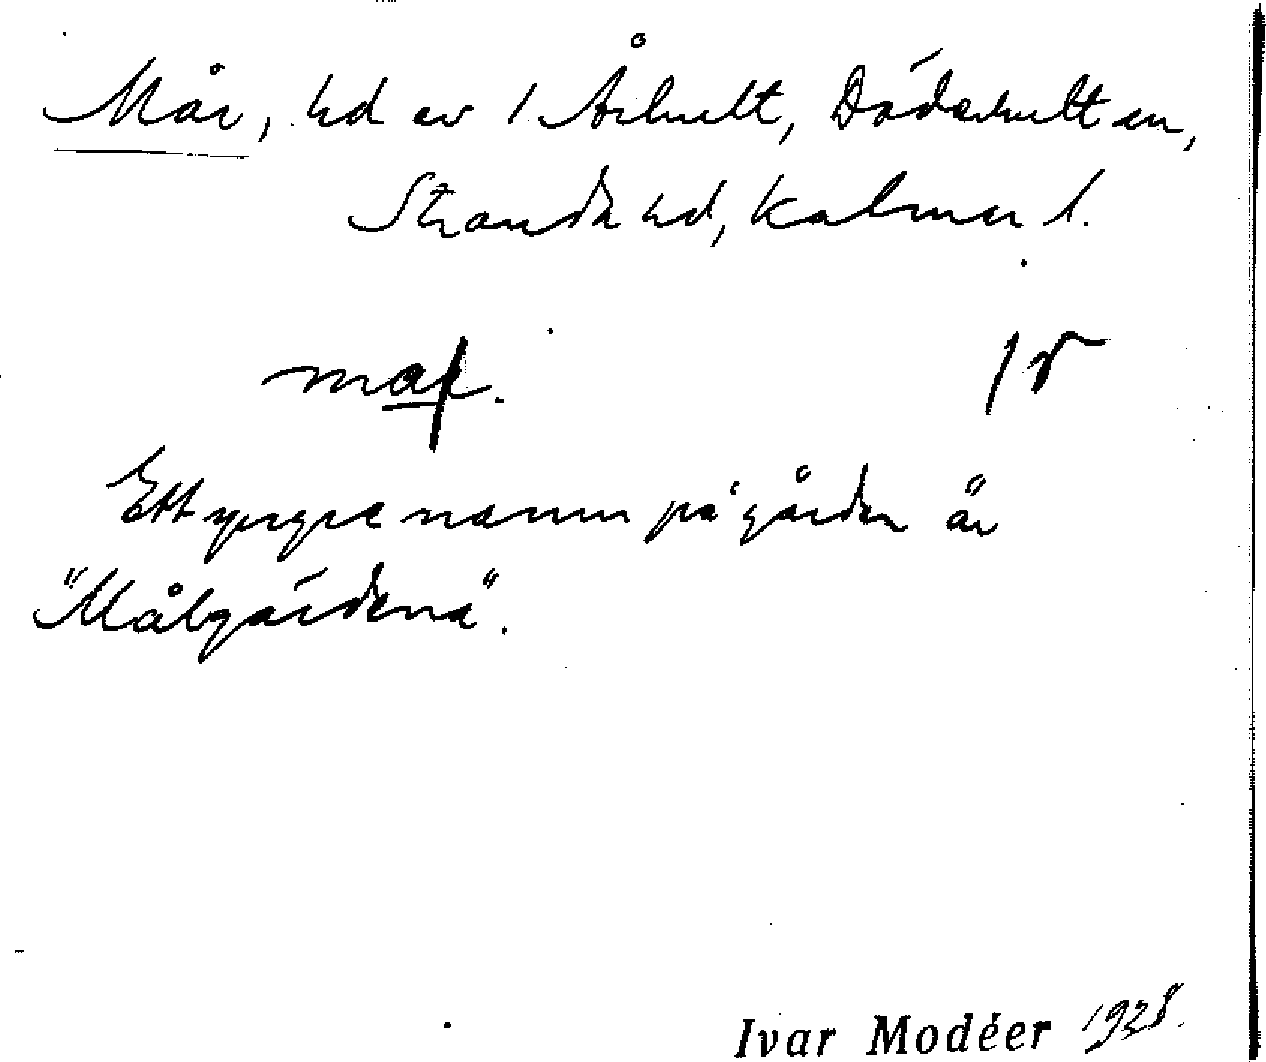 Mår, hd av 1 Århult, Döderhult sn,
Stranda hd, Kalmar l.
Ett yngre namn på gården är
"Målgårdena".
Ivar Modéer 1928.